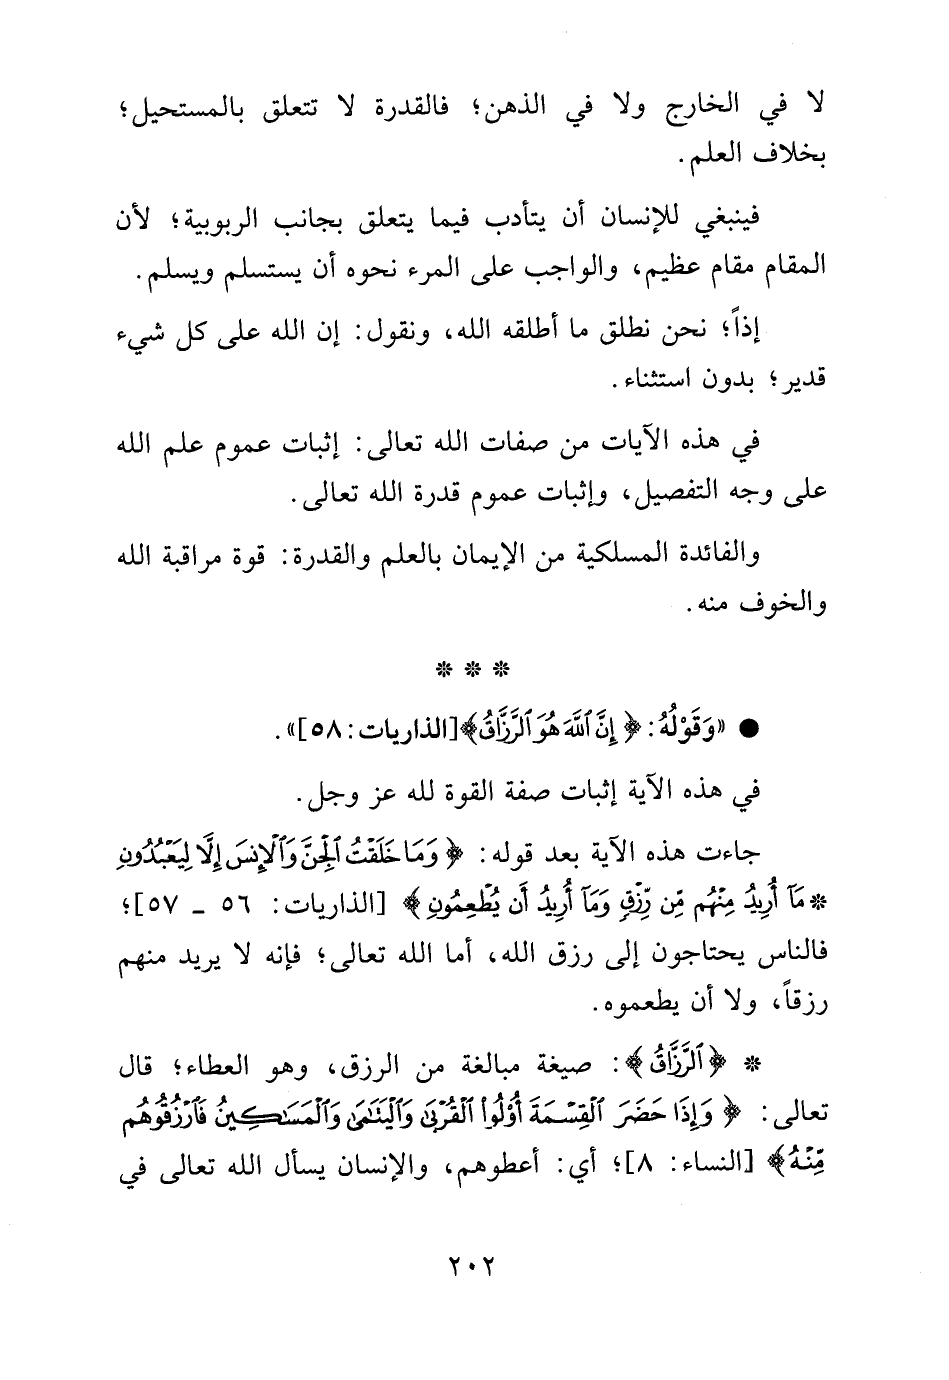 لا في الخارج ولا في الذهن؛ فالقدرة لا تتعلق بالمستحيل؛
بخلاف العلم.
فينبغي للإنسان أن يتأدب فيما يتعلق بجانب الربوبية؛ لأن
المقام مقام عظيم، والواجب على المرء نحوه أن يستسلم ويسلم.
إذاً؛ نحن نطلق ما أطلقه الله، ونقول: إن الله على كل شيء
قدير؛ بدون استثناء.
في هذه الآيات من صفات الله تعالى: إثبات عموم علم الله
على وجه التفصيل، وإثبات عموم قدرة الله تعالى.
والفائدة المسلكية من الإيمان بالعلم والقدرة: قوة مراقبة الله
والخوف منه.
* * *
● «وَقَوْلُهُ: ﴿إِنَّ ٱللَّهَ هُوَ ٱلرَّزَّاقُ﴾[الذاريات: ٥٨]».
في هذه الآية إثبات صفة القوة لله عز وجل.
جاءت هذه الآية بعد قوله: ﴿وَمَا خَلَقْتُ ٱلْجِنَّ وَٱلْإِنسَ إِلَّا لِيَعْبُدُونِ
* مَآ أُرِيدُ مِنْهُم مِّن رِّزْقٍ وَمَآ أُرِيدُ أَن يُطْعِمُونِ﴾ [الذاريات: ٥٦ ـ ٥٧]؛
فالناس يحتاجون إلى رزق الله، أما الله تعالى؛ فإنه لا يريد منهم
رزقاً، ولا أن يطعموه.
* ﴿ٱلرَّزَّاقُ﴾: صيغة مبالغة من الرزق، وهو العطاء؛ قال
تعالى: ﴿وَإِذَا حَضَرَ ٱلْقِسْمَةَ أُوْلُوا۟ ٱلْقُرْبَىٰ وَٱلْيَتَٰمَىٰ وَٱلْمَسَٰكِينُ فَٱرْزُقُوهُم
مِّنْهُ﴾ [النساء: ٨]؛ أي: أعطوهم، والإنسان يسأل الله تعالى في
٢٠٢